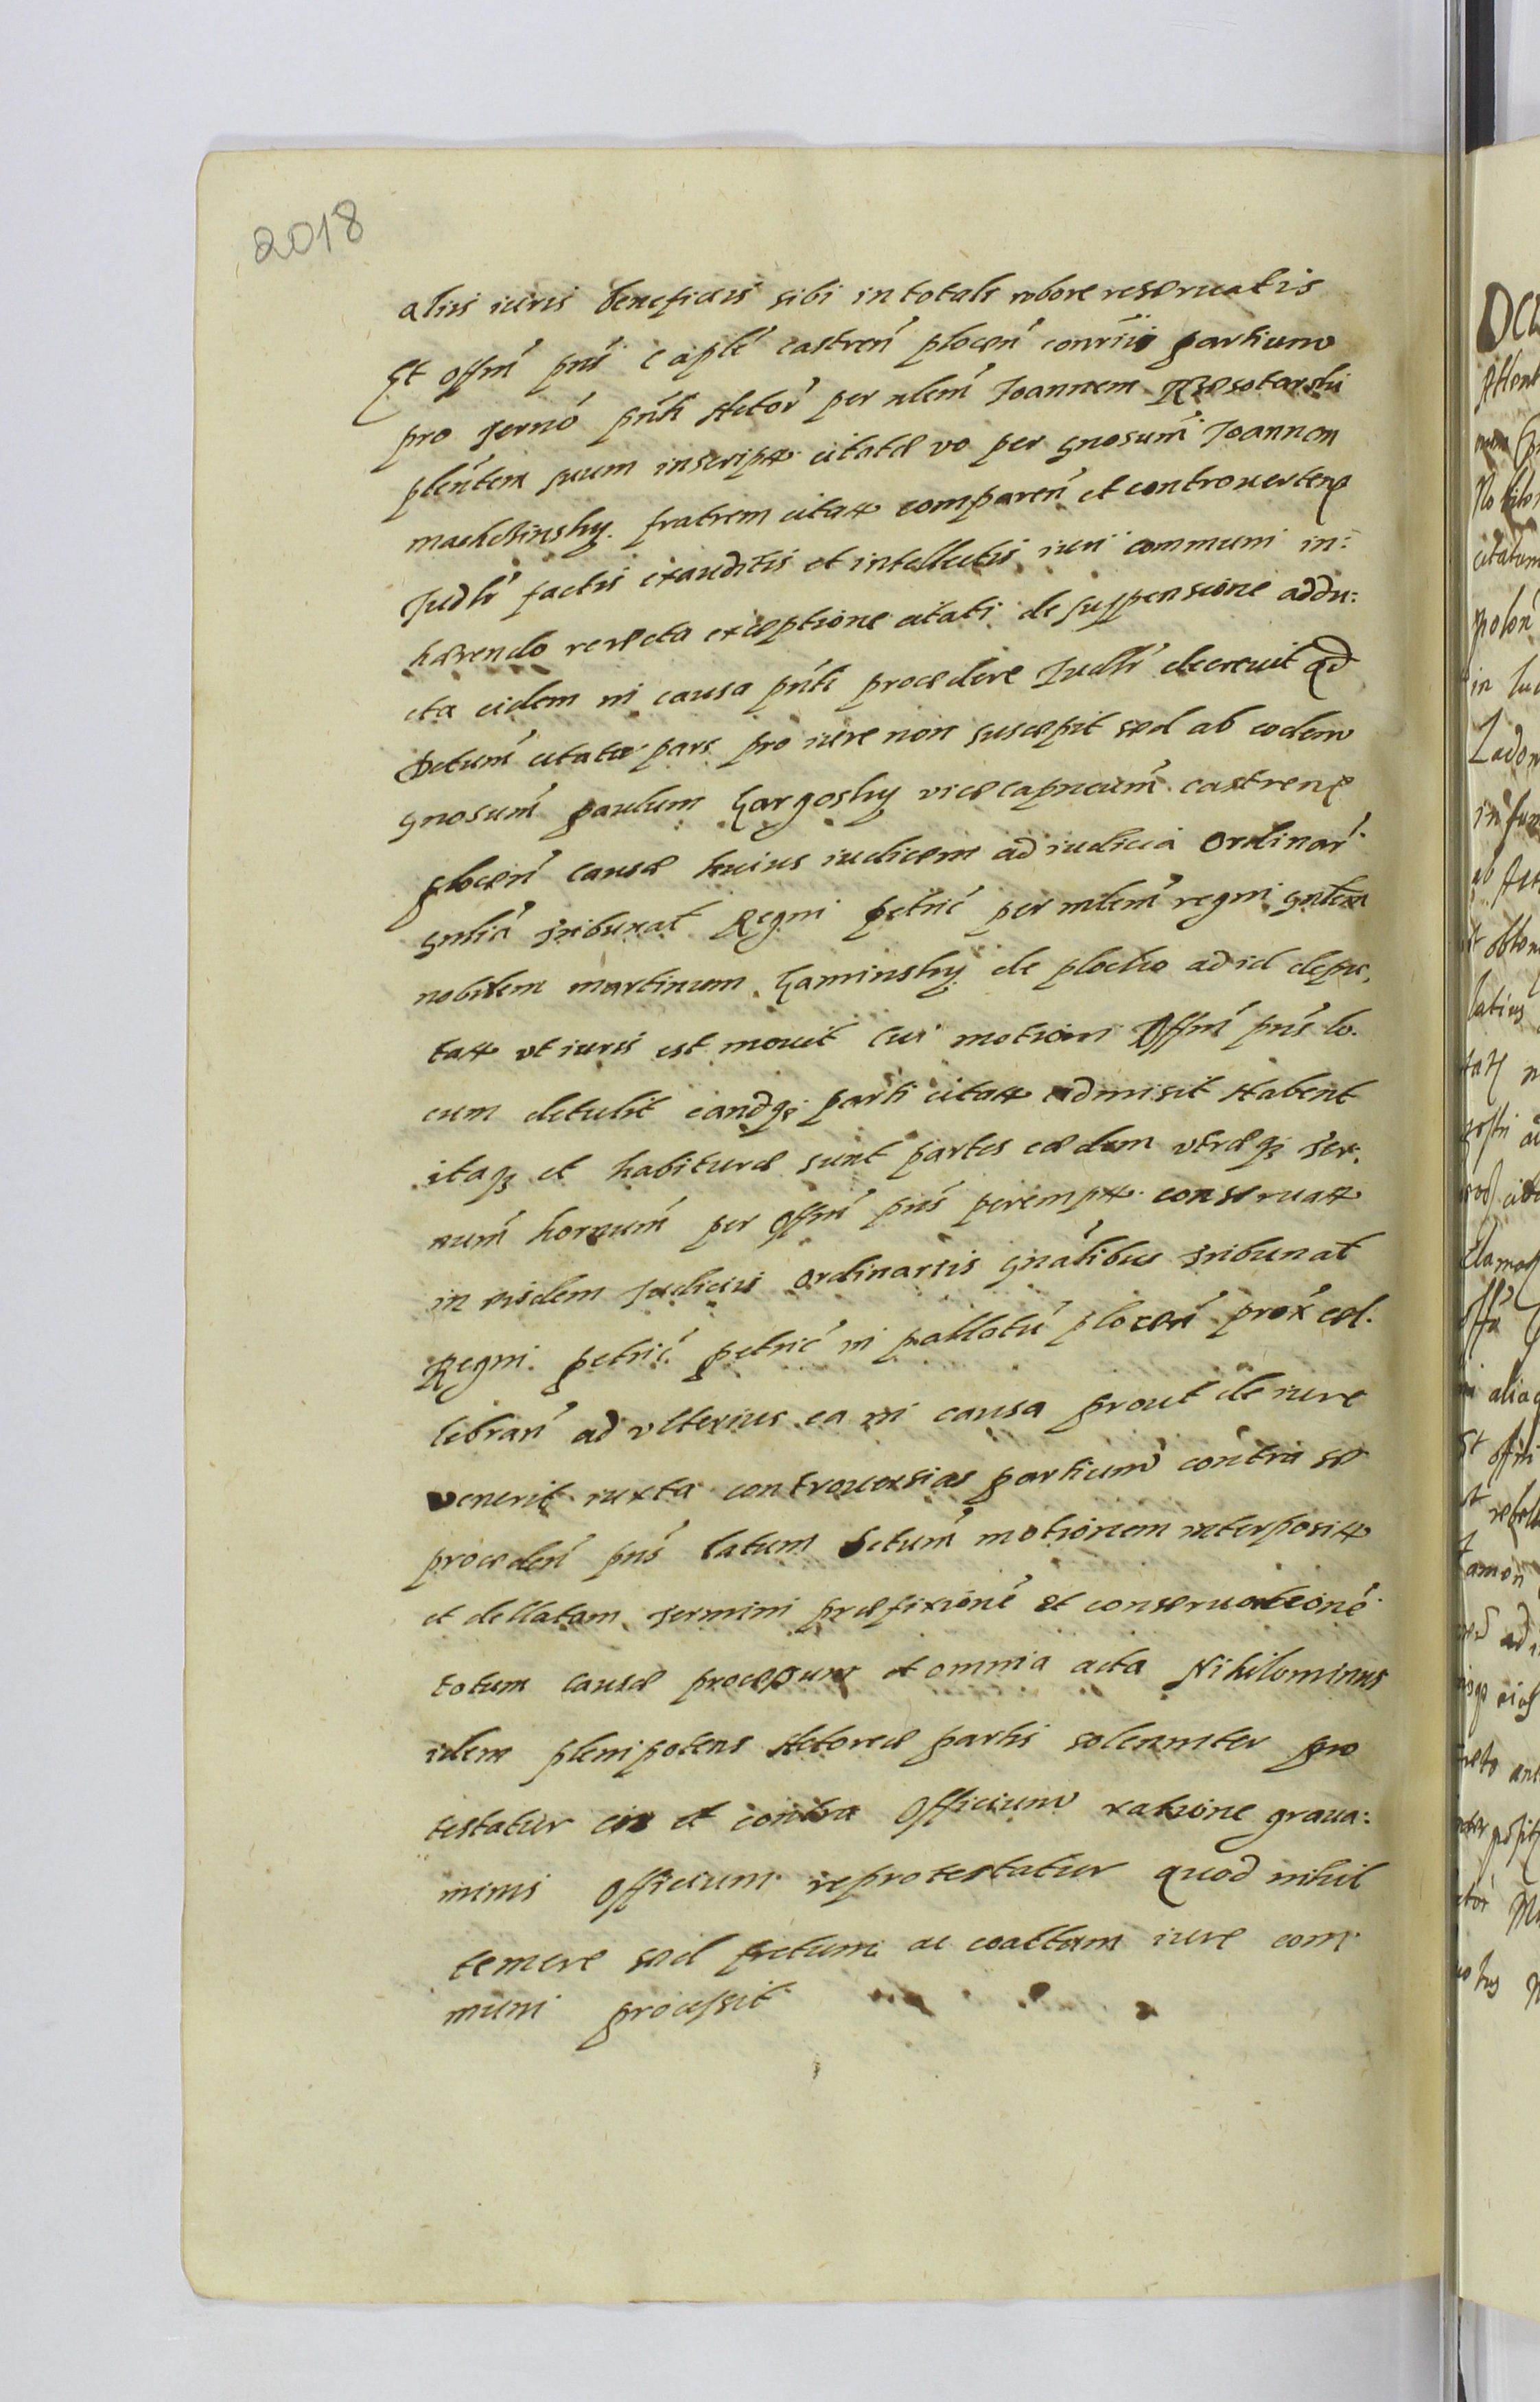 2018
aliis iuris beneficiis sibi in totali robore reseruatis
Et offm̃ pñs Capłe castreñ ploceñ conr̃iis partium
pro terno pñti Actor̃ per nłem Ioannem Rzesotarski
pleñtem suum inscript citatæ vo per gnosum̃ Ioannem
fratrem citat compareñ et controuerteñ
Iudłr factis exauditis et intellectis iuri communi in:
hærendo reiecta exceptione citati de suspensione addu:
cta eidem in causa pñti procedere Iudłr decreuit Qd
Dctum̃ citatæ pars pro iure non suscepit sed ab eodem
gnosum̃ paulum Gargosky vicecapneum̃ castreñ
ploceñ causæ huius iudicem ad iudicia Ordinar̃
gnłia Tribunał Regni petric̃ per nłem̃ regni gnłem
nobilem martinum Kaminsky de plocko ad id depu:
tat vt iuris est mouit Cui motioni Offm̃ pñs lo.
cum detulit eandq; parti citat admisit Habent
itaq; et habituræ sunt partes eædem vtræq; ter:
num̃ horum̃ per offm̃ pñs perempt conseruat
in eisdem Iudiciis ordinariis gnãlibus Tribunał
Regni petric̃ petric̃ in pallatũ ploceñ prox̃ cel.
lebrañ ad vlterius ea in causa prout de iure
venerit iuxta controuersias partium contra se
procedeñ pñs latum Dctum̃ motionem interposit
et dellatam termini præfixionẽ et conseruationẽ
totum causæ processum et omnia acta Nihilominus
idem plenipotens Actoreæ partis solenniter pro
testatur in et contra Officium ratione graua:
minis Officium reprotestatur quod nihil
temere sed fretum ac coactum iure com
muni processit